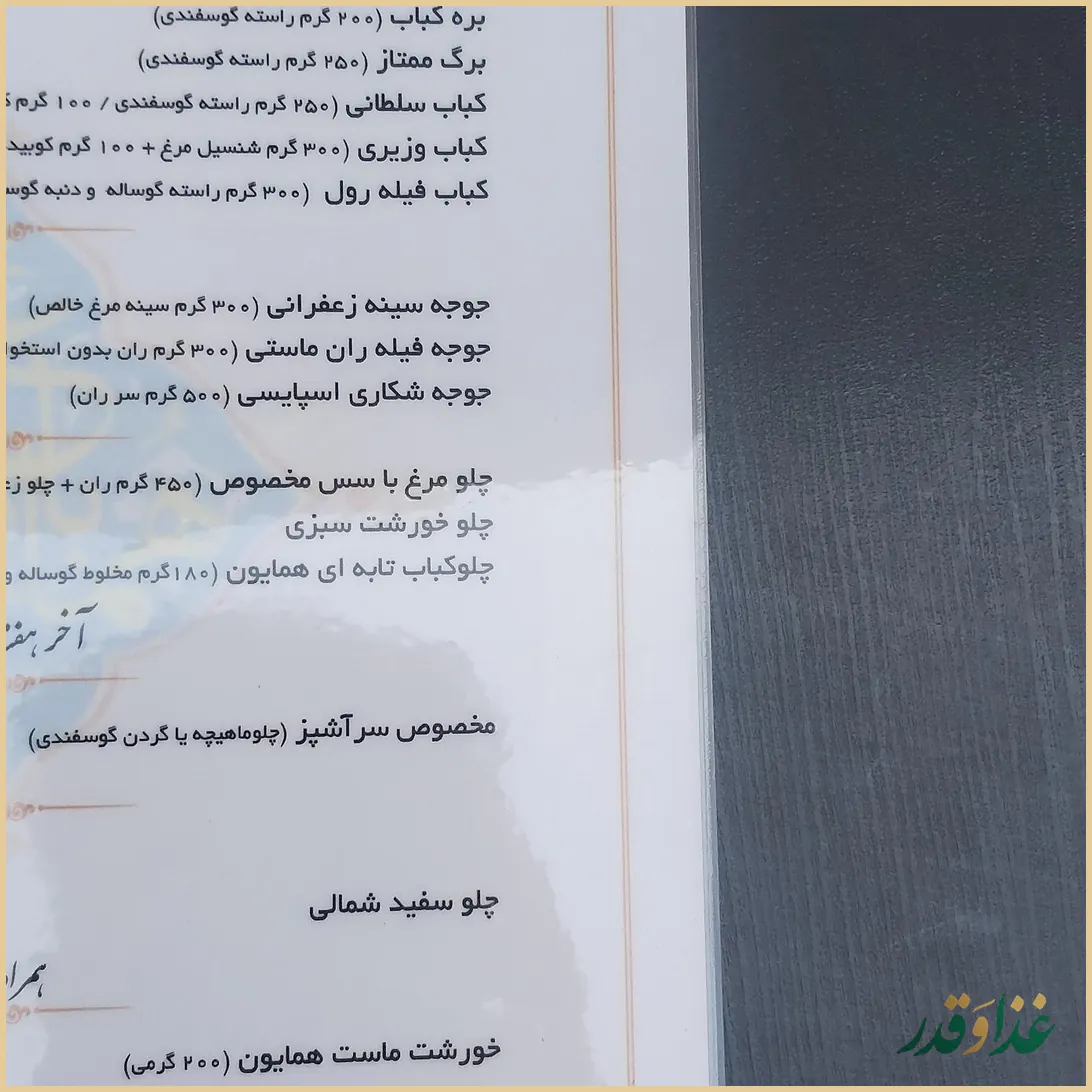 بره کباب (۲۰۰ گرم راسته گوسفندی)
برگ ممتاز (۲۵۰ گرم راسته گوسفندی)
کباب سلطانی (۲۵۰ گرم راسته گوسفندی / ۱۰۰ گرم
کباب وزیری (۳۰۰ گرم شنسیل مرغ + ۱۰۰ گرم کوبید
کباب فیله رول (۳۰۰ گرم راسته گوساله و دنبه گوس
جوجه سینه زعفرانی (۳۰۰ گرم سینه مرغ خالص)
جوجه فیله ران ماستی (۳۰۰ گرم ران بدون استخوا
جوجه شکاری اسپایسی (۵۰۰ گرم سر ران)
چلو مرغ با سس مخصوص (۴۵۰ گرم ران + چلو زع
چلو خورشت سبزی
چلوکباب تابه ای همایون (۱۸۰گرم مخلوط گوساله و
آخر هفت
مخصوص سرآشپز (چلوماهیچه یا گردن گوسفندی)
چلو سفید شمالی
همرا
خورشت ماست همایون (۲۰۰ گرمی)
غذا و قدر